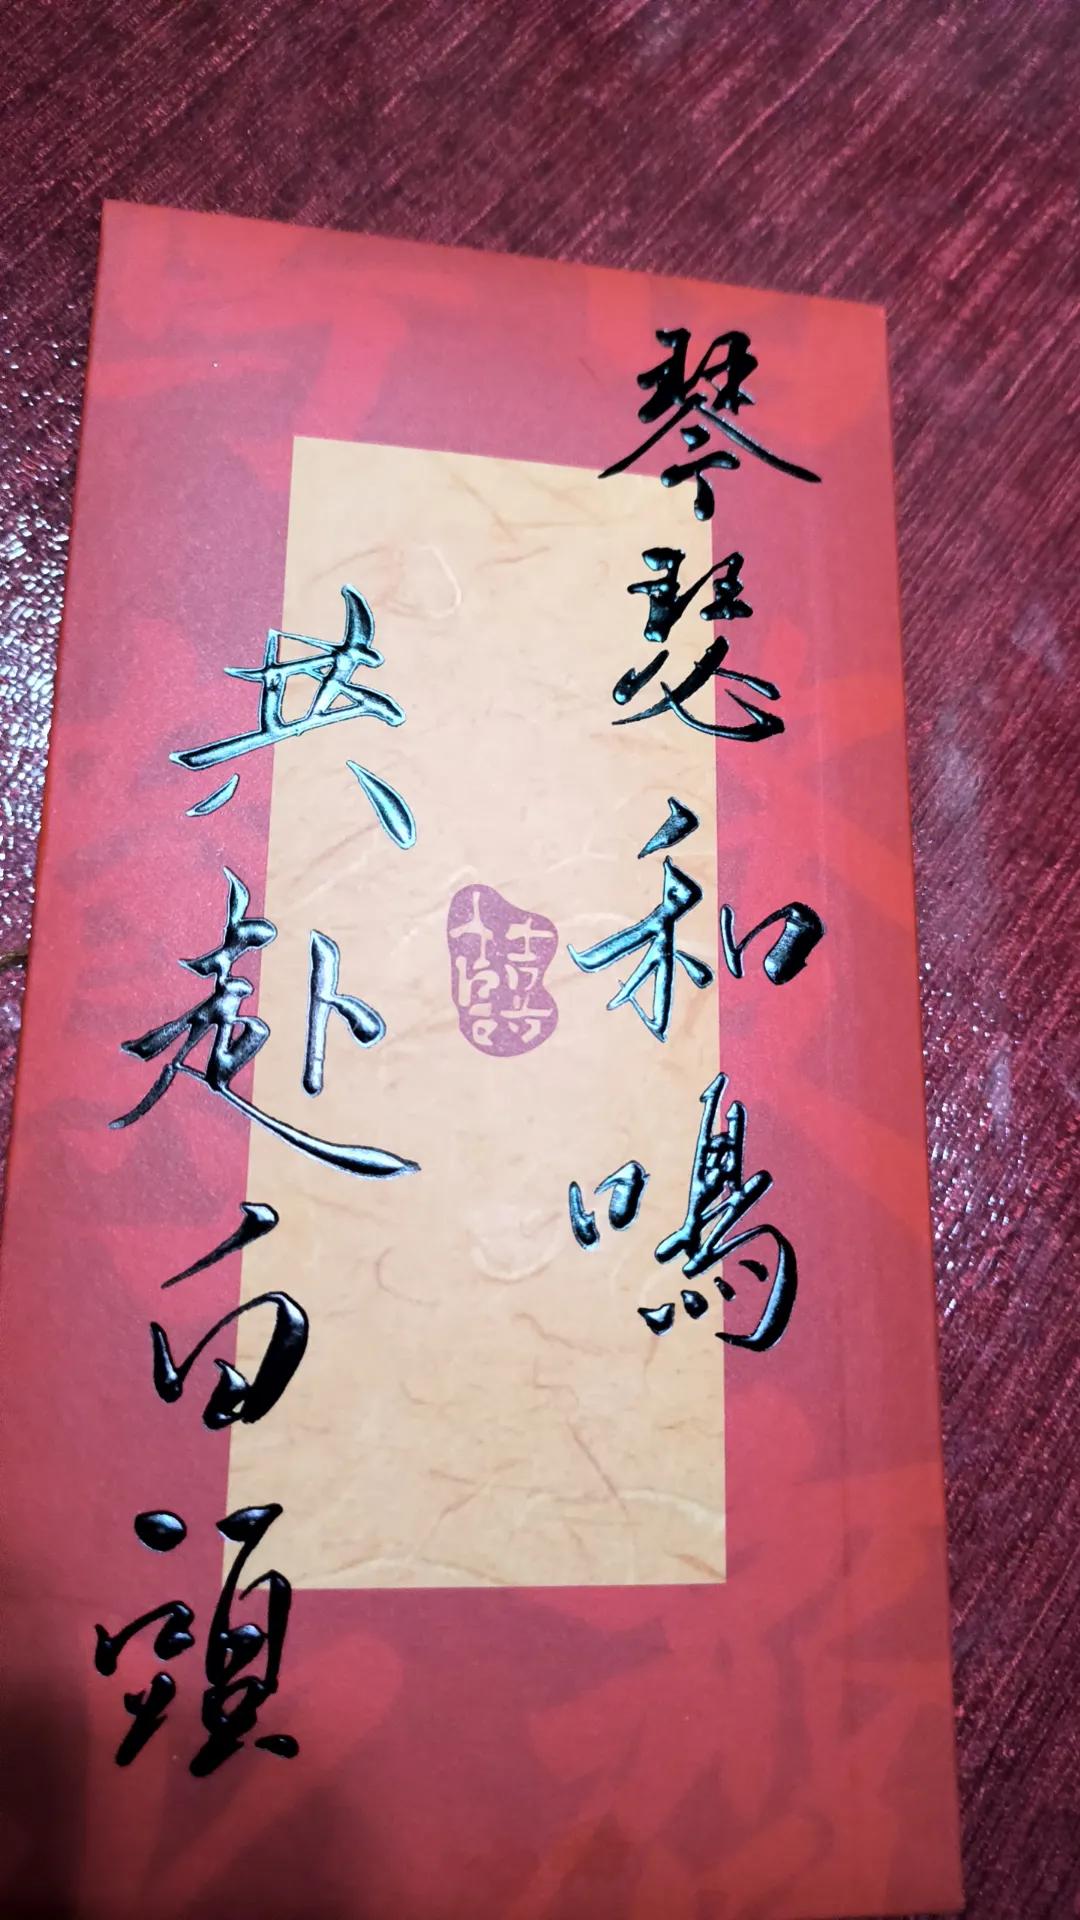 琴瑟和鳴
共赴白頭
囍